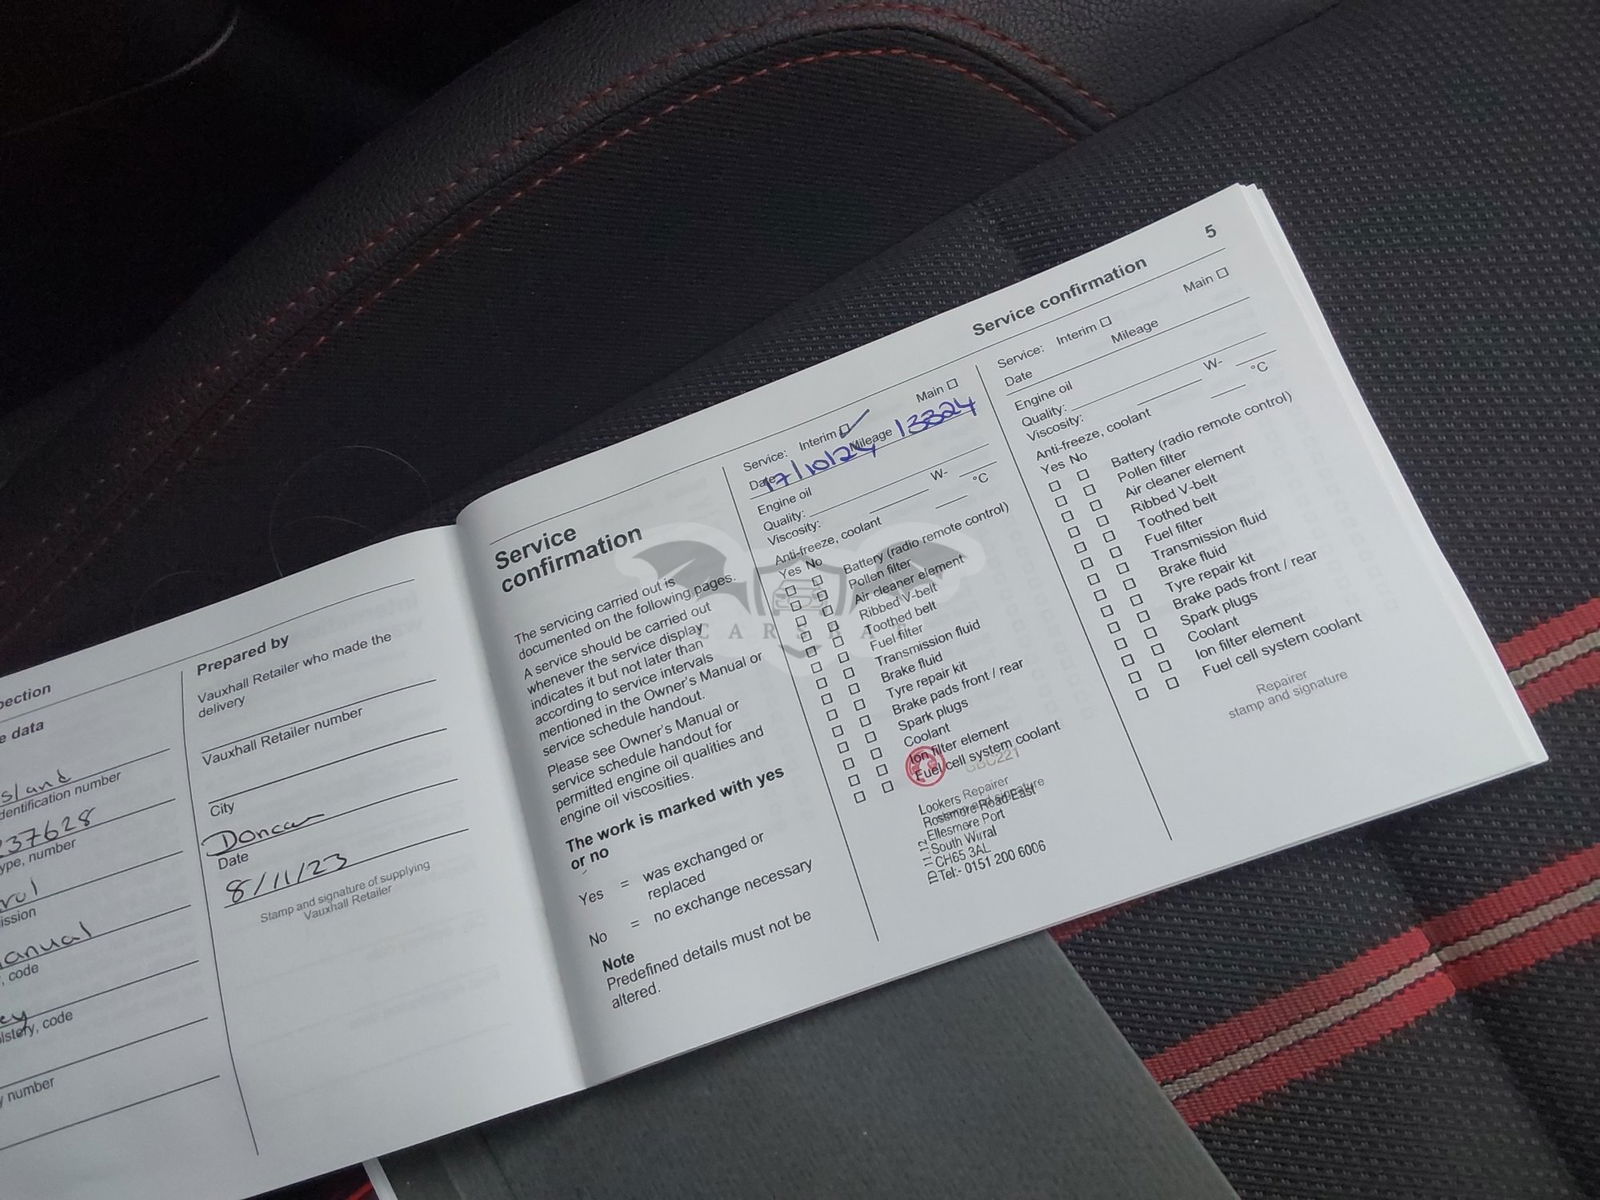 pection
e data
sland
dentification number
237628
ype, number
rol
ission
anual
, code
ey
olstery, code
y number
Prepared by
Vauxhall Retailer who made the
delivery
Vauxhall Retailer number
City
Doncas
Date
8/11/23
Stamp and signature of supplying
Vauxhall Retailer
Service
confirmation
The servicing carried out is
documented on the following pages.
A service should be carried out
whenever the service display
indicates it but not later than
according to service intervals
mentioned in the Owner's Manual or
service schedule handout.
Please see Owner's Manual or
service schedule handout for
permitted engine oil qualities and
engine oil viscosities.
The work is marked with yes
or no
Yes = was exchanged or
replaced
No = no exchange necessary
Note
Predefined details must not be
altered.
Service confirmation 5
Service: Interim ☑ Main ☐
Date 17/10/24 Mileage 13324
Engine oil
Quality:
Viscosity: W-
Anti-freeze, coolant °C
Yes No
Battery (radio remote control)
Pollen filter
Air cleaner element
Ribbed V-belt
Toothed belt
Fuel filter
Transmission fluid
Brake fluid
Tyre repair kit
Brake pads front / rear
Spark plugs
Coolant
Ion filter element
Fuel cell system coolant
GBC221
Repairer
stamp and signature
Lookers
Rossmore Road East
Ellesmere Port
South Wirral
CH65 3AL
Tel:- 0151 200 6006
Service: Interim ☐ Main ☐
Date Mileage
Engine oil
Quality:
Viscosity: W-
Anti-freeze, coolant °C
Yes No
Battery (radio remote control)
Pollen filter
Air cleaner element
Ribbed V-belt
Toothed belt
Fuel filter
Transmission fluid
Brake fluid
Tyre repair kit
Brake pads front / rear
Spark plugs
Coolant
Ion filter element
Fuel cell system coolant
Repairer
stamp and signature